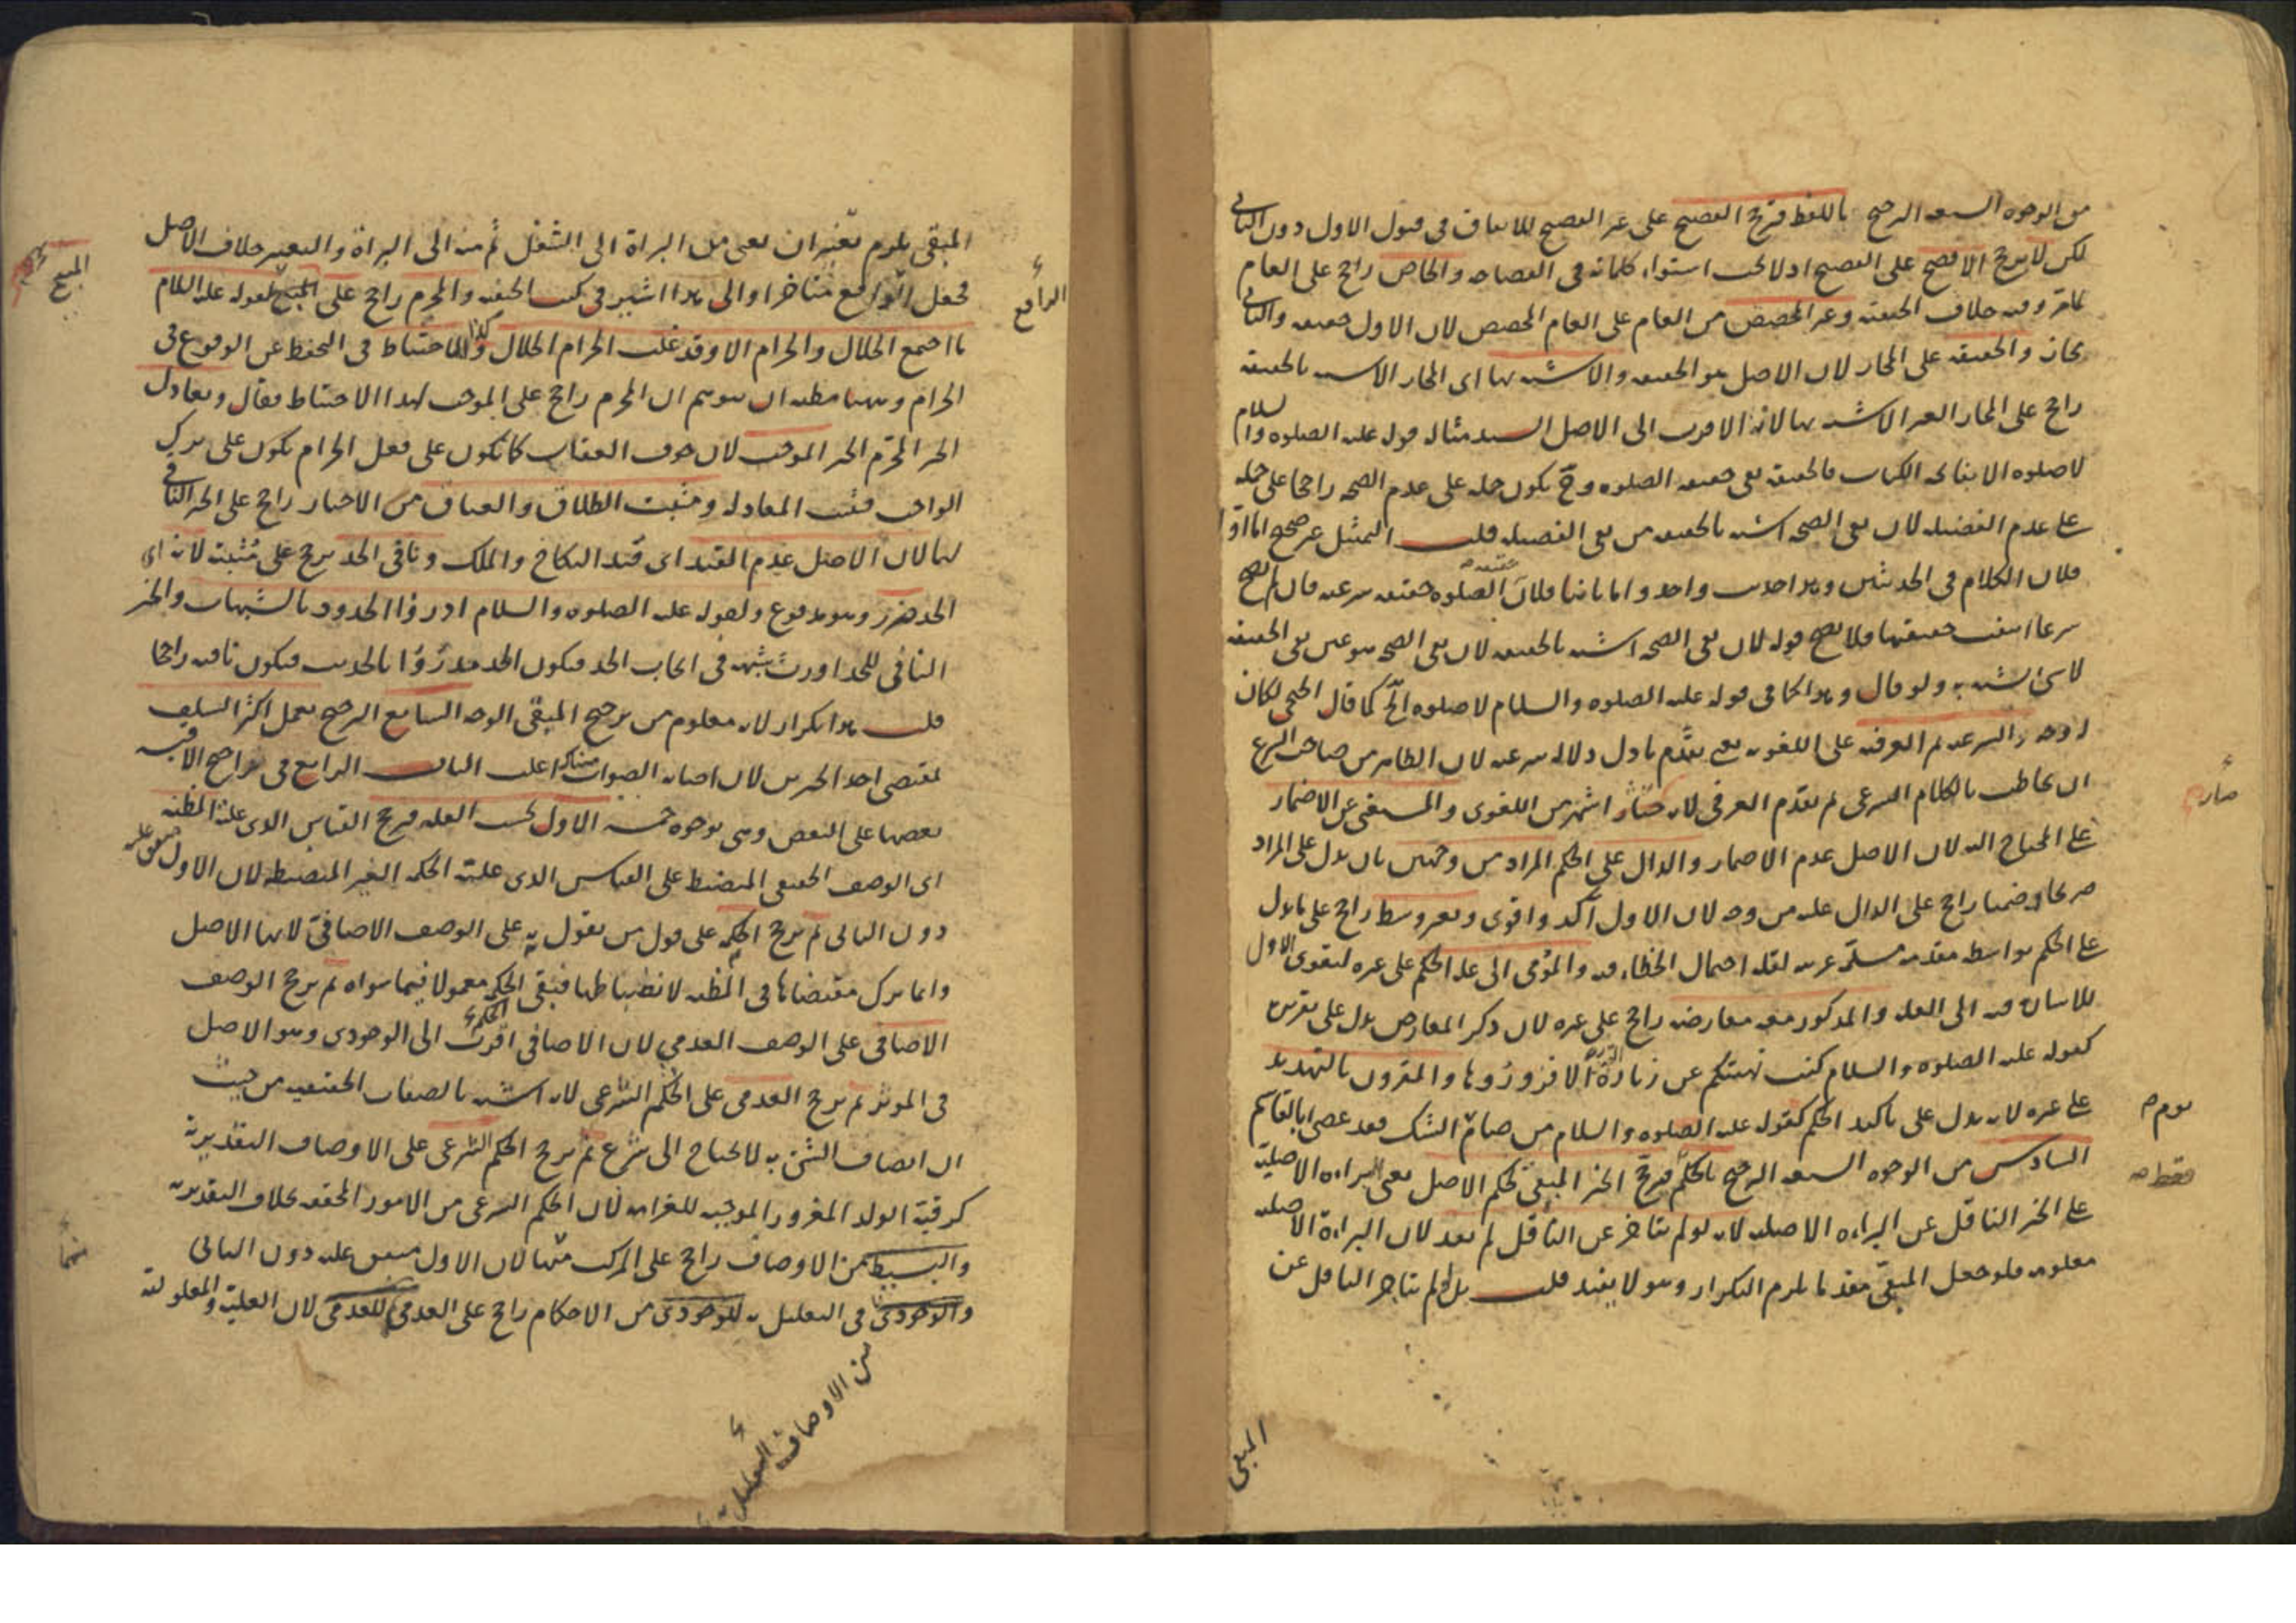 من الوجوه السبعه الترجيح باللفظ فيرجح الفصيح على غير الفصيح للاتفاق فى قبول الاول دون الثانى
لكن لا يرجح الافصح على الفصيح اذ لا يجب استواء كلماته فى الفصاحه والخاص راجح على العام
لما مر وفيه خلاف الحنفيه وغير المخصص من العام على العام المخصص لان الاول حقيقه والثانى
مجاز والحقيقه على المجاز لان الاصل هو الحقيقه والاشبه بها اى المجاز الاشبه بالحقيقه
راجح على المجاز الغير الاشبه بها لانه الاقرب الى الاصل السيد مثاله قوله عليه الصلوه والسلام
لا صلوه الا بفاتحه الكتاب فالحقيقه نفى حقيقه الصلوه وح يكون حمله على عدم الصحه راجحا على حمله
على عدم الفضيله لان نفى الصحه اشبه بالحقيقه من نفى الفضيله قلت التمثيل غير صحيح اما اولا
فلان الكلام فى الحديثين وهذا حديث واحد واما ثانيا فلان الصلوه حقيقه شرعيه فان لم تصح
شرعا انتفت حقيقتها فلا يصح قوله لان نفى الصحه اشبه بالحقيقه لان نفى الصحه هو عين نفى الحقيقه
لا شئ اشبه به ولو قال وهذا كما فى قوله عليه الصلوه والسلام لا صلوه الخ كما قال الخنجى لكان
اوجه والشرعيه ثم العرفيه على اللغويه يعنى يقدم ما دل دلاله شرعيه لان الظاهر من صاحب الشرع
ان يخاطب بالكلام الشرعى ثم يقدم العرفى لانه اشهر من اللغوى والمستغنى عن الاضمار
على المحتاج اليه لان الاصل عدم الاضمار والدال على الحكم المراد من وجهين بان يدل على المراد
صريحا وضمنا راجح على الدال عليه من وجه لان الاول آكد واقوى وبغير وسط راجح على ما يدل
على الحكم بواسطه مقدمه لقله احتمال الخطاء فيه والمومى الى عله الحكم على غيره لتقوى الاول
للاسان فيه الى العله والمذكور معه معارضه راجح على غيره لان ذكر المعارض يدل على
كقوله عليه الصلوه والسلام كنت نهيتكم عن زيارة القبور الا فزوروها والمقرون بالتهديد
على غيره لانه يدل على تاكيد الحكم كقوله عليه الصلوه والسلام من صام يوم الشك فقد عصى ابا القاسم
السادس من الوجوه السبعه الترجيح بالحكم فيرجح الخبر المبقى لحكم الاصل يعنى البراءه الاصلية
على الخبر الناقل عن البراءه الاصليه لانه لو لم يتاخر عن الناقل لم يفد لان البراءة الاصليه
معلومه فلو جعل المبقى مقدما يلزم التكرار وهو لا يفيد قلت بل لو لم يتاخر الناقل عن
المبقى
المبقى يلزم تغيران يعنى من البراة الى الشغل ثم منه الى البراة والتغيير خلاف الاصل
فجعل الرافع متاخرا والى هذا اشير فى كتب الحنفيه والمحرم راجح على المبيح لقوله عليه السلام
ما اجتمع الحلال والحرام الا وقد غلب الحرام الحلال وللاحتياط فى التحفظ عن الوقوع فى
الحرام وههنا مظنه ان يتوهم ان المحرم راجح على الموجب لهذا الاحتياط فقال ويعادل
الخبر المحرم الخبر الموجب لان خوف العقاب كما يكون على فعل الحرام يكون على ترك
الواجب فثبت المعادله ومثبت الطلاق والعتاق من الاخبار راجح على الخبر النافى
لهما لان الاصل عدم القيد اى قيد النكاح والملك ونافى الحد يرجح على مثبته لانه اى
الحد ضرر وهو مدفوع ولقوله عليه الصلوه والسلام ادرؤا الحدود بالشبهات والخبر
النافى للحد اورث شبهه فى ايجاب الحد فيكون الحد مدرؤا بالحديث فيكون نافيه راجحا
قلت هذا تكرار لانه معلوم من ترجيح المبقى الوجه السابع الترجيح بعمل اكثر السلف
بمقتضى احد الخبرين لان اصابه الصواب هناك اغلب الباب الرابع فى تراجيح الاقيسه
بعضها على البعض وهى بوجوه خمسه الاول بحسب العله فيرجح القياس الذى علته المظنه
اى الوصف الحقيقى المنضبط على القياس الذى علته الحكمه الغير المنضبطه لان الاول متفق عليه
دون الثانى ثم يرجح الحكمه على قول من يقول به على الوصف الاضافى لانها الاصل
وانما ترك مقتضاها فى المظنه لانضباطها فبقى الحكم معمولا فيما سواه ثم يرجح الوصف
الاضافى على الوصف العدمى لان الاضافى اقرب الى الوجودى وهو الاصل
فى المؤثر ثم يرجح العدمى على الحكم الشرعى لانه اشبه بالصفات الحقيقيه من حيث
ان اتصاف الشئ به لا يحتاج الى شرع ثم يرجح الحكم الشرعى على الاوصاف التقديرية
كرقية الولد المغرور الموجبه للغرامه لان الحكم الشرعى من الامور المحققه بخلاف التقديريه
والبسيط من الاوصاف راجح على المركب منها لان الاول متفق عليه دون الثانى
والوجودى فى التعليل به للوجودى من الاحكام راجح على العدمى للعدمى لان العلية والمعلولية
من الاوصاف
الرافع
المبيح
يوم
فقط